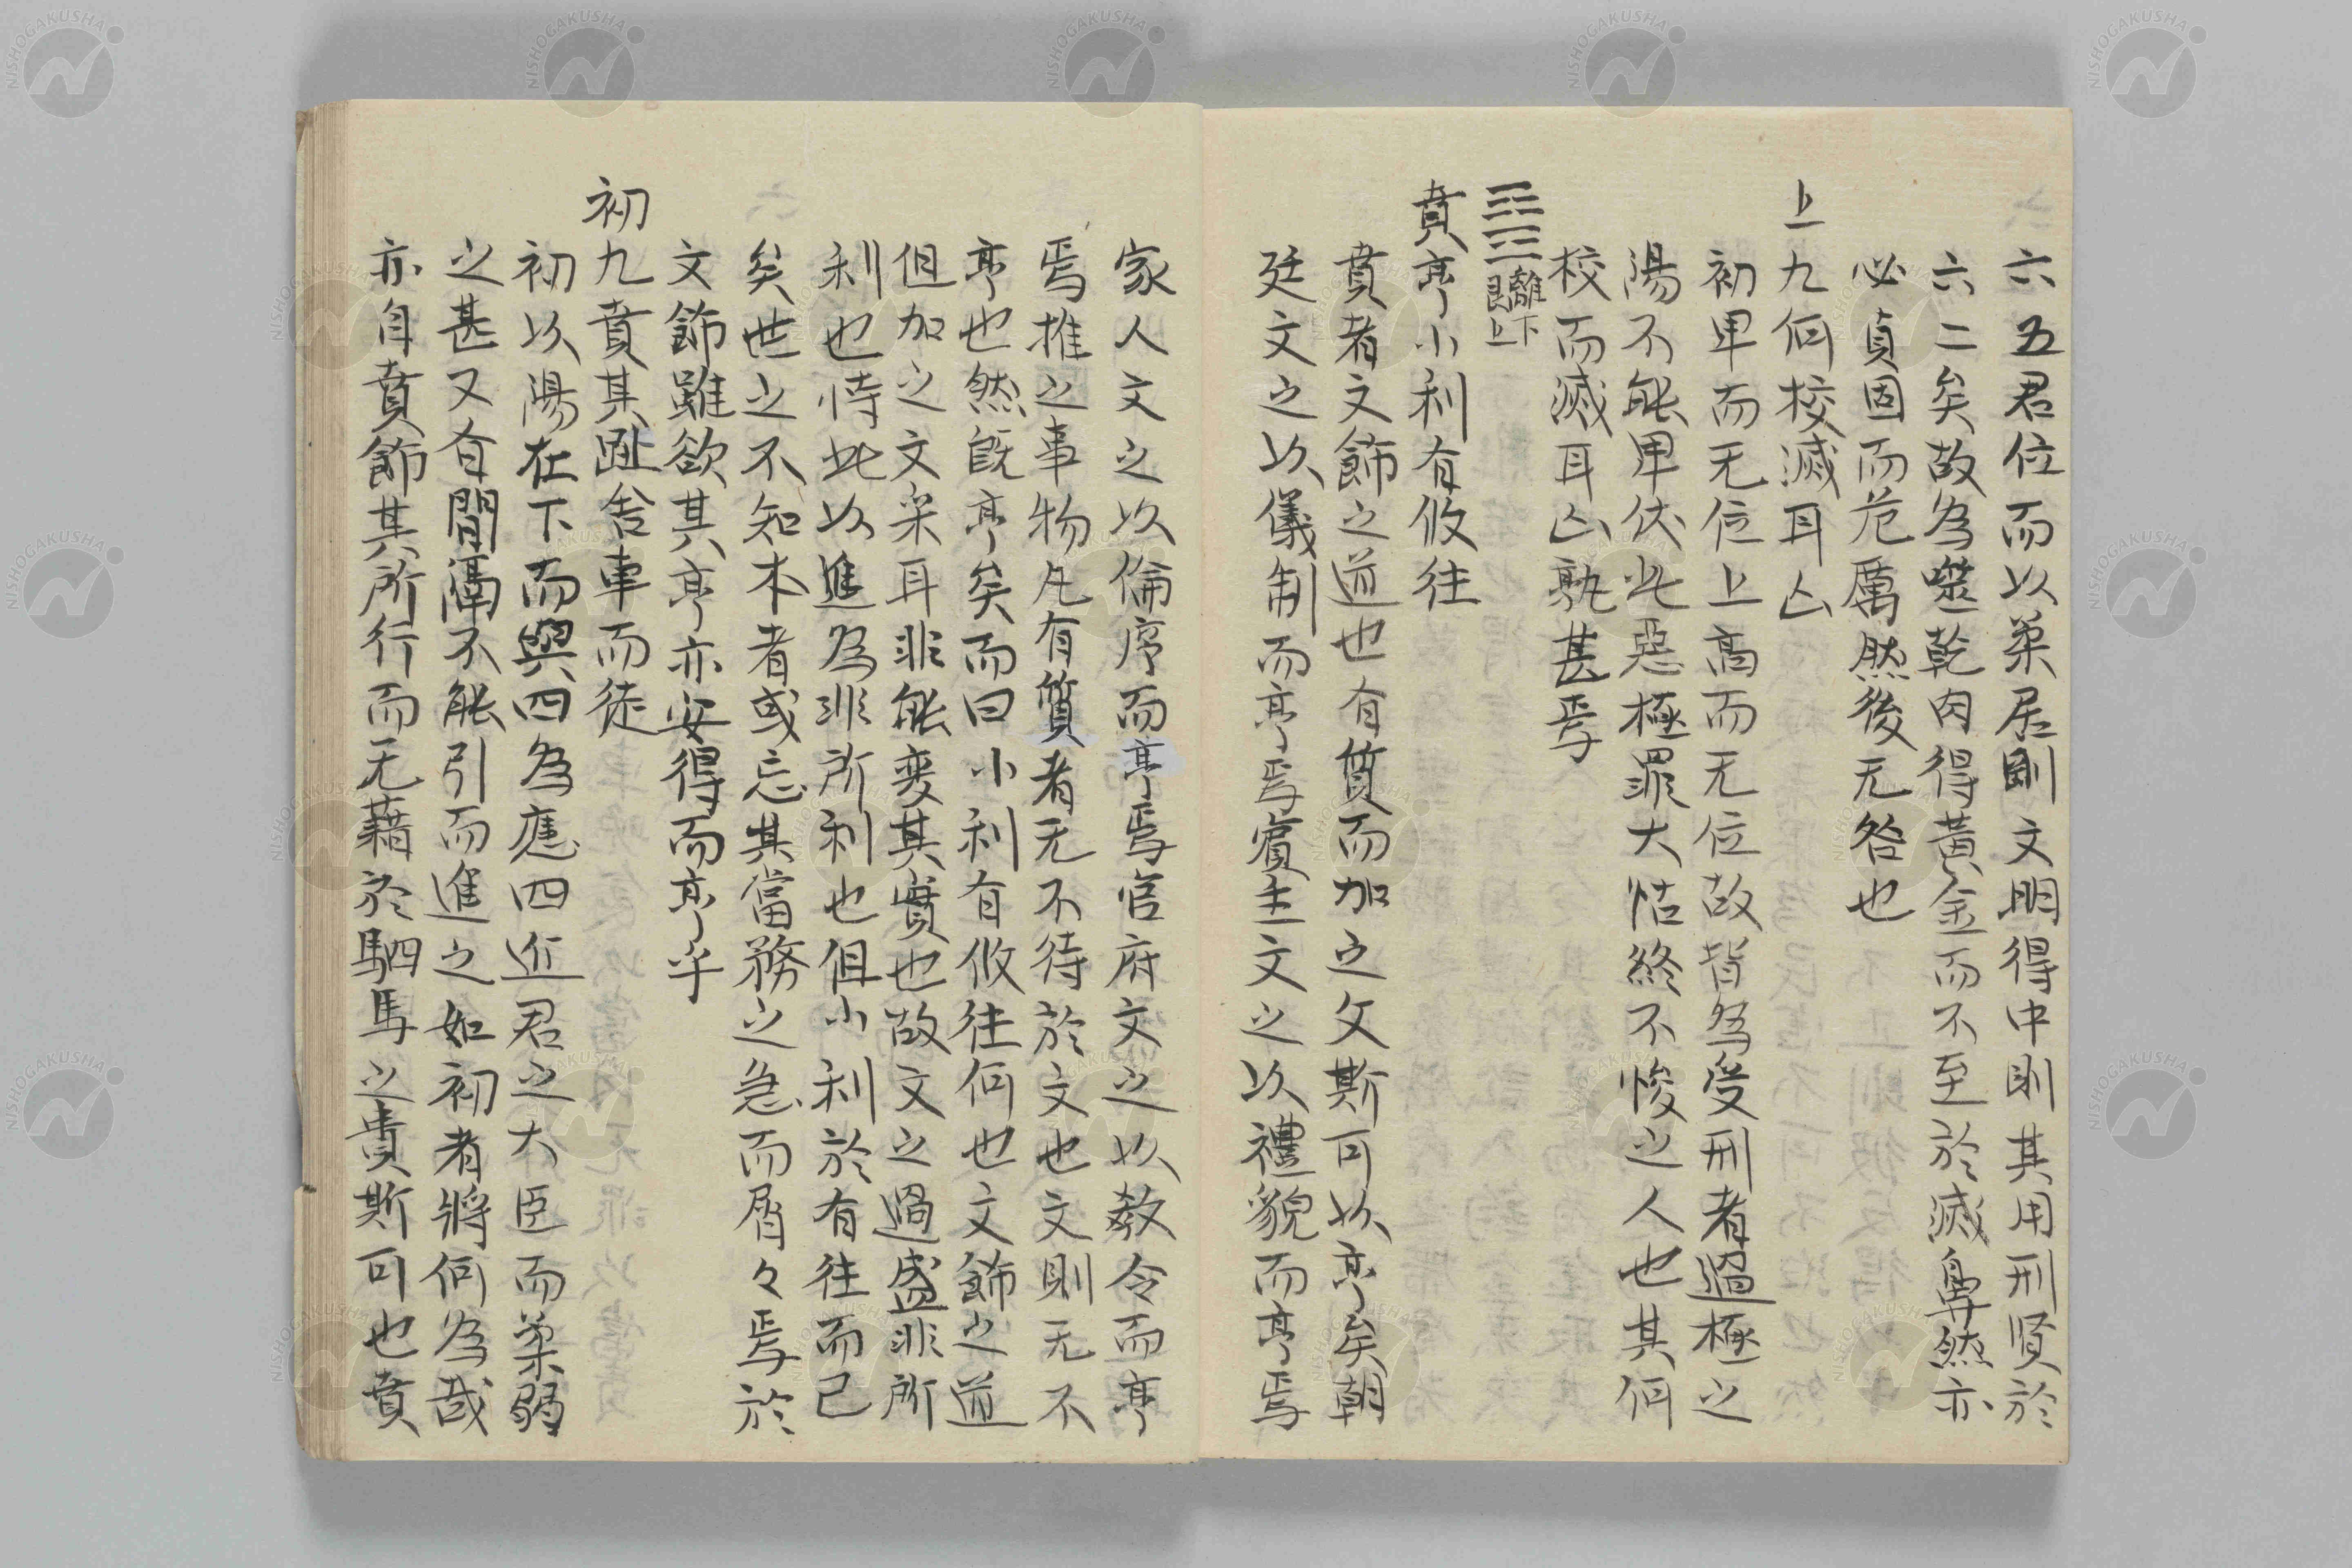 六五君位而以柔居則文明得中則其用刑賢於
六二矣故為噬乾肉得黃金而不至於滅鼻然亦
必貞固而危厲然後无咎也
上九何校滅耳凶
初卑而无位上高而无位故皆為受刑者過極之
陽不能卑伏此惡極罪大怙終不悛之人也其何
校而滅耳凶孰甚焉
離下艮上
賁亨小利有攸往
賁者文飾之道也有質而加之文斯可以亨矣朝
廷文之以儀制而亨焉賓主文之以禮貌而亨焉
家人文之以倫序而亨焉官府文之以教令而亨
焉推之事物凡有質者无不待於文也文則无不
亨也然既亨矣而曰小利有攸往何也文飾之道
但加之文采耳非能変其實也故文之過盛非所
利也恃此以進為非所利也但小利於有往而已
矣世之不知本者或忘其當務之急而屑々焉於
文飾雖欲其亨亦安得而亨乎
初九賁其趾舎車而徒
初以陽在下而與四為應四近君之大臣而柔弱
之甚又有間隔不能引而進之如初者將何為哉
亦自賁飾其所行而无藉於駟馬之貴斯可也賁
NISHOGAKUSHA